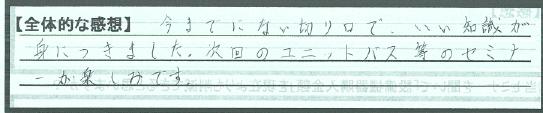 【全体的な感想】 今までにない切り口で、いい知識が
身につきました。次回のユニットバス等のセミナ
ーが楽しみです。